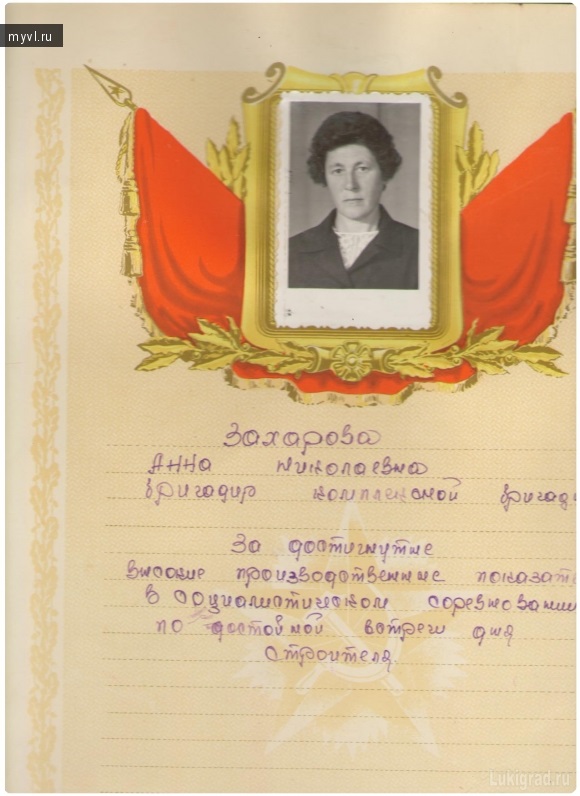 myvl.ru
Захарова
Анна Николаевна
бригадир комплексной бригад
За достигнутые
высокие производственные показат
в социалистическом соревновании
по достойной встречи дня
строителя
Lukigrad.ru